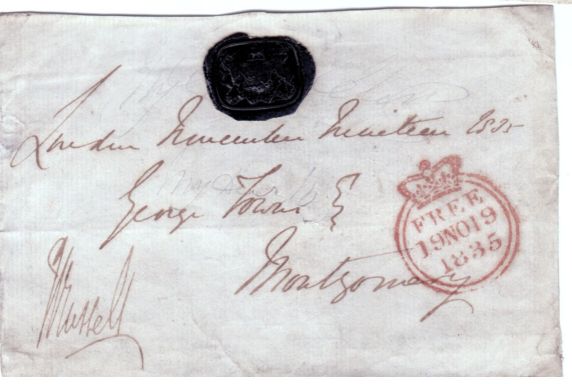 London November Nineteen 1835
George Town
Montgomery
Russell
FREE
19NO19
1835